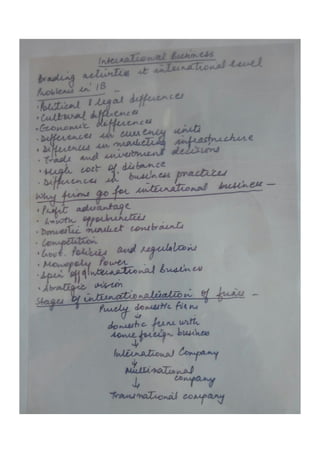 International Business
Trading activities at international level
Problems in IB -
• Political & legal differences
• Cultural differences
• Economic differences
• Differences in currency units
• Differences in marketing infrastructure
• Trade and investment decisions
• High cost of distance
• Differences in business practices
Why firms go for international business -
• Profit advantage
• Growth opportunities
• Domestic market constraints
• Competition
• Govt. Policies and regulations
• Monopoly Power
• Spin off of International Business
• Strategic vision
Stages of internationalization of firms -
Purely domestic Firms
↓
domestic firms with
some foreign business
↓
International Company
↓
Multinational
company
↓
Transnational company